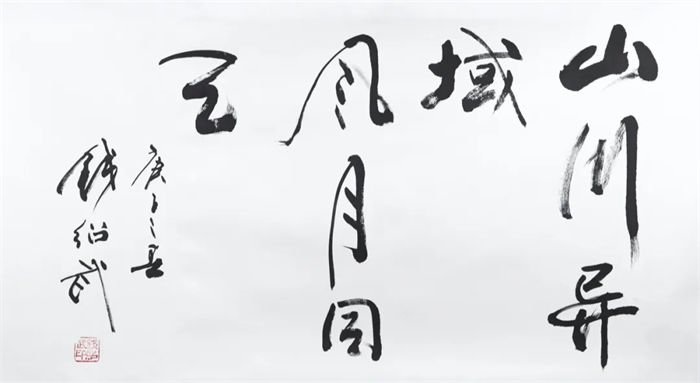 山川异
域
风月同
天
庚子之春
钱绍武